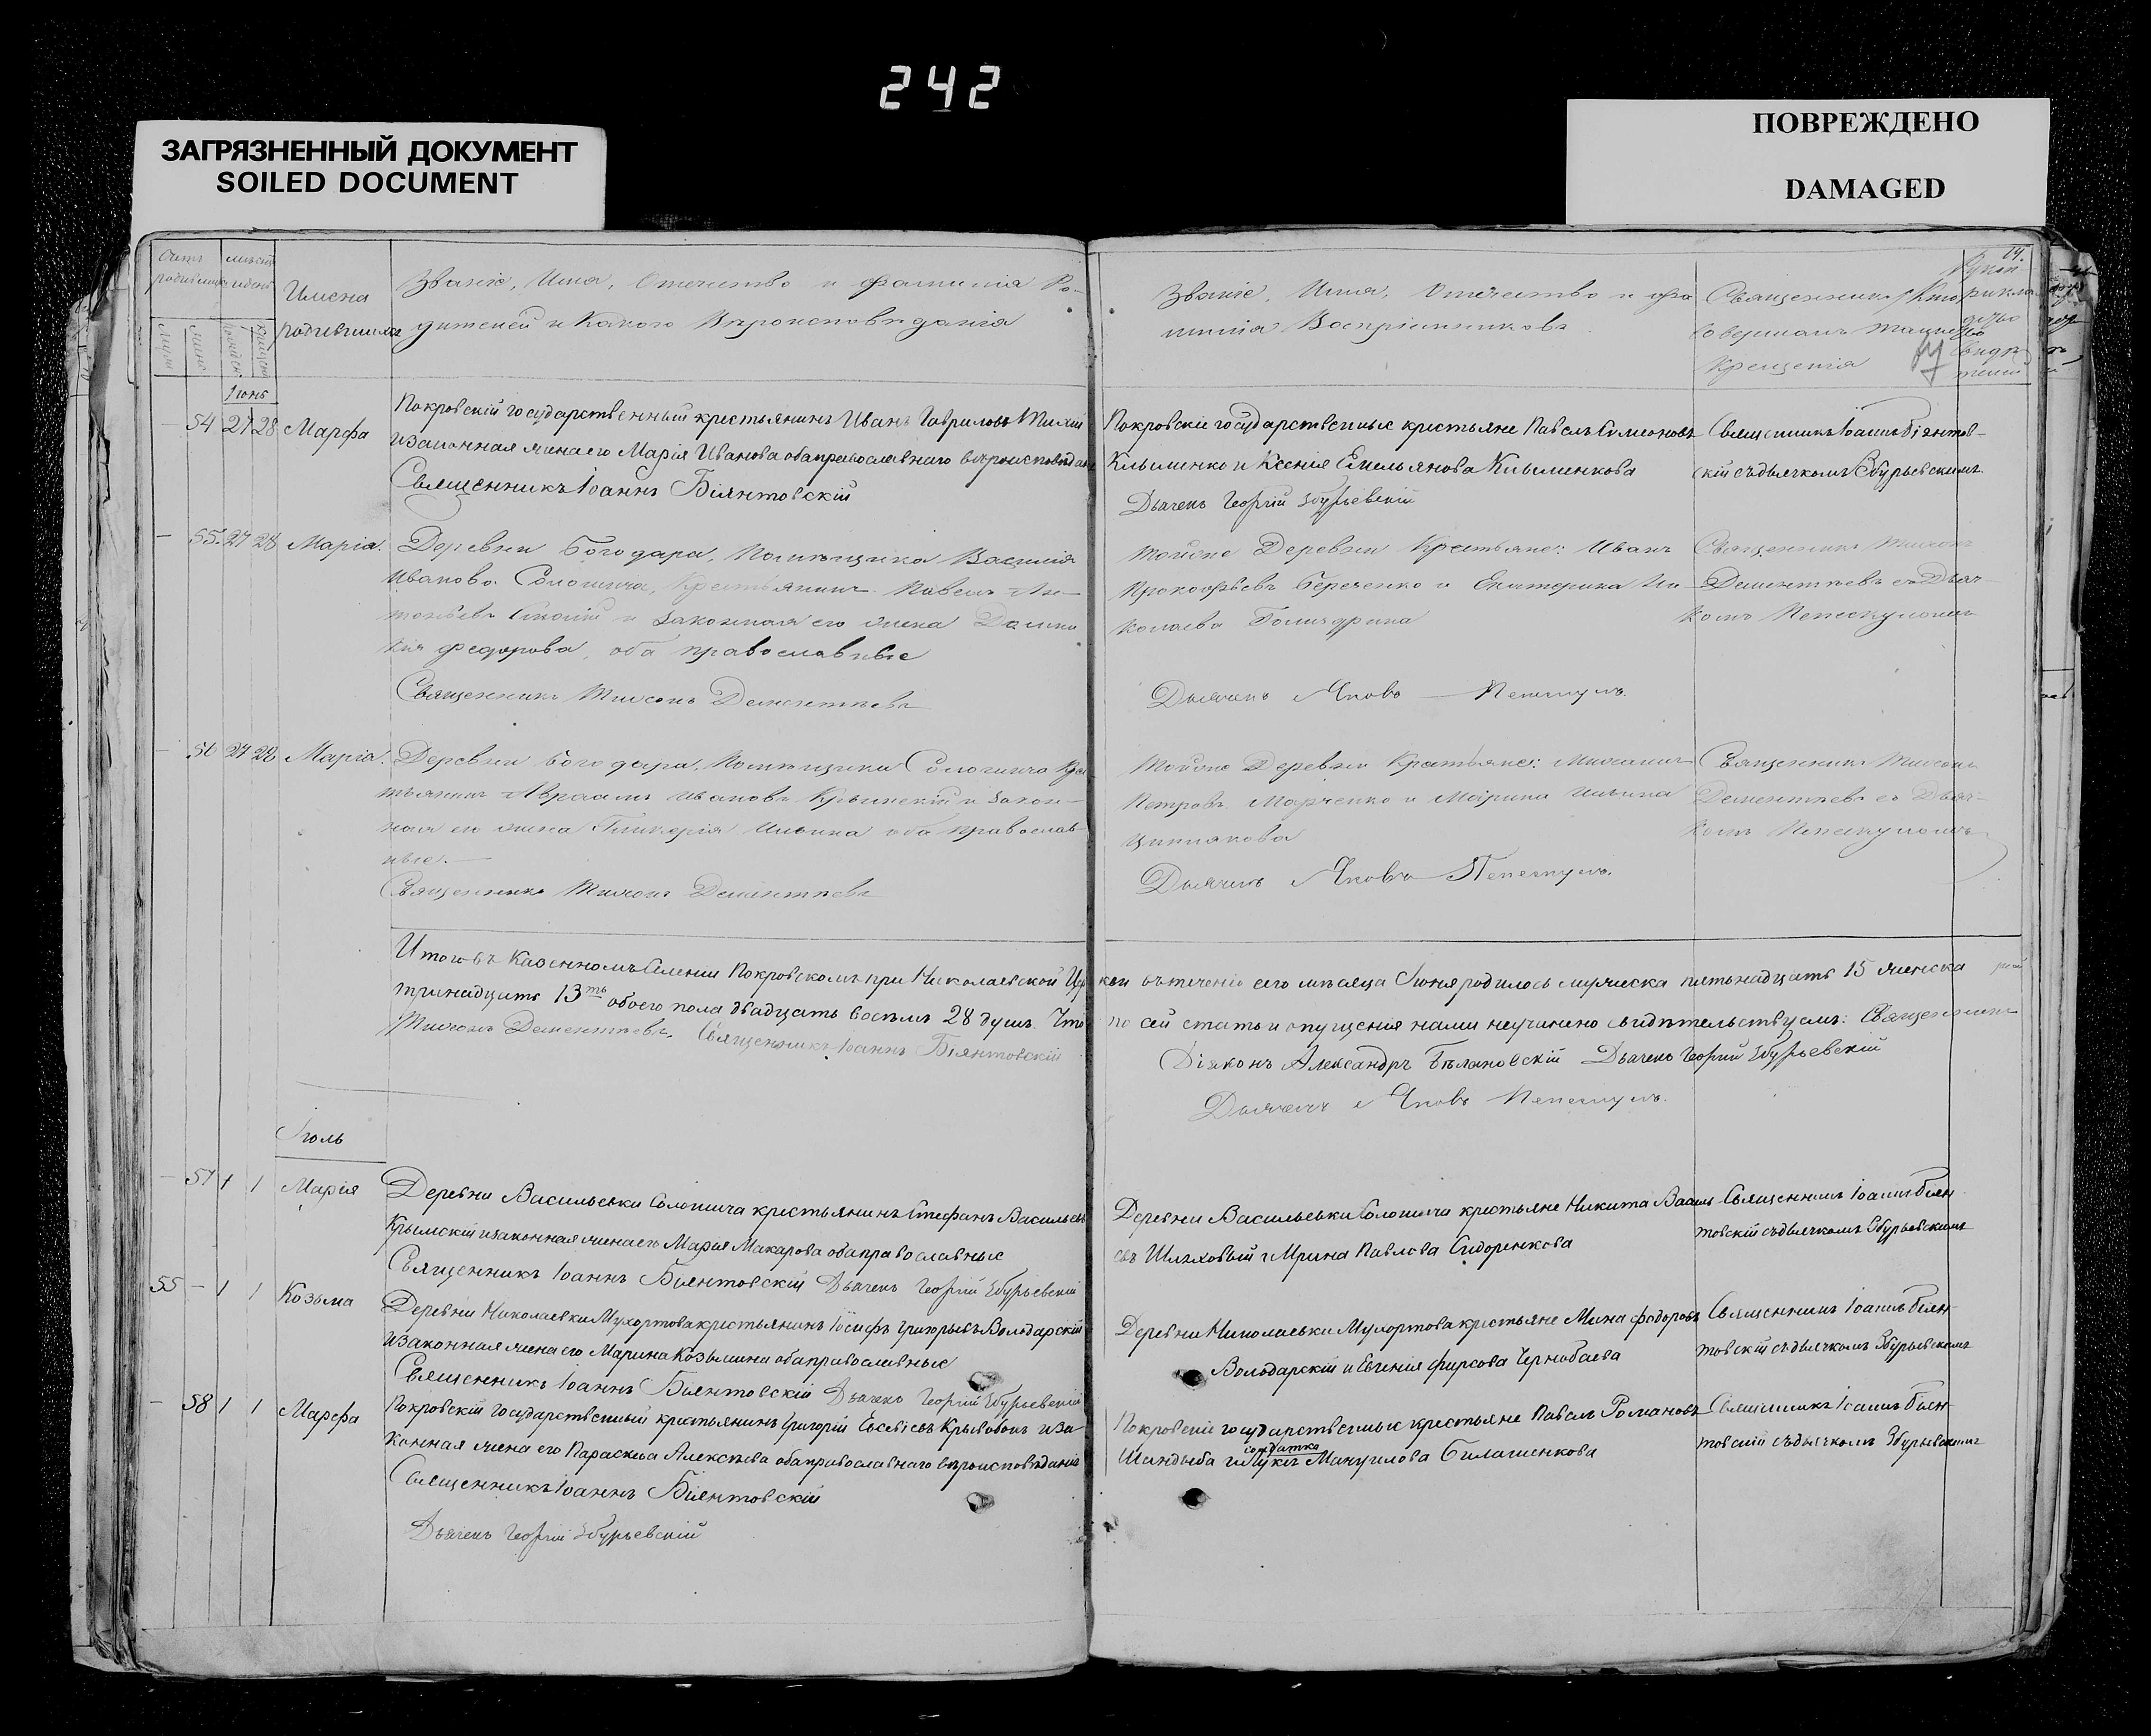 242
ЗАГРЯЗНЕННЫЙ ДОКУМЕНТ
SOILED DOCUMENT
ПОВРЕЖДЕНО
DAMAGED
14.
Счетъ родившихся
мѣсяцъ и день
Имена родившихся
Званіе, Имя, Отечество и фамилія Ро-
дителей и Какого Вѣроисповѣданія
Званіе, Имя, Отечество и фа
милія Воспріемниковъ
Священникъ / Кто
Совершалъ таинство
Крещенія
Іюнь
54 27 28 Марфа
Покровскій государственный крестьянинъ Иванъ Гавриловъ Тихій
и законная жена его Марія Иванова оба православнаго вѣроисповѣдан
Священникъ Іоаннъ Біянтовскій
Покровскіе государственные крестьяне Павелъ Симеоновъ
Клыменко и Ксенія Емельянова Клыменкова
Дьячекъ Георгій Збурьевскій
Священникъ Іоаннъ Біянтов-
скій съ дьячкомъ Збурьевскимъ
55. 27 28 Марія.
Деревни Богодара, Помѣщика Василія
Иванова Сологиича, Крестьянинъ Павелъ
и Законная его жена
Федорова, оба православные
Священникъ Тихонъ Дементьевъ
Тойже Деревни Крестьяне: Иванъ
Прокофьевъ Береченко и Екатерина Ни-
колаева Гончарина
Дьячекъ Яковъ
Священникъ Тихонъ
Дементьевъ съ Дьяч-
комъ
56 27 28 Марія.
Деревни Богодара, Помѣщика Крес
тьянинъ Авраамъ Ивановъ Крымскій и Закон-
ная его жена Гликерія Ильина оба православ-
ные.
Священникъ Тихонъ Дементьевъ
Тойже Деревни Крестьяне: Михаилъ
Петровъ Марченко и Марина Ильина
Дьячекъ Яковъ
Священникъ Тихонъ
Дементьевъ съ Дьяч-
комъ
Итого въ Казенномъ Селении Покровскомъ при Николаевской Цер
кви въ теченіе сего мѣсяца Іюня родилось мужеска пятьнадцать 15 женска
тринадцать 13ть обоего пола двадцать восемъ 28 душъ. Что
по сей статьи опущенія нами неучинено свидѣтельствуемъ: Священникъ
Тихонъ Дементьевъ. Священникъ Іоаннъ Біянтовскій
Діяконъ Александръ Бѣлановскій Дьячекъ Георгій Збурьевскій
Дьячекъ Яковъ
Іюль
57 1 1 Марія
Деревни Васильевки Сологиича крестьянинъ Стефанъ Васильевъ
Крымскій и законная жена его Марія Макарова оба православные
Священникъ Іоаннъ Біянтовскій Дьячекъ Георгій Збурьевскій
Деревни Васильевки Сологиича крестьяне Никита Василь
евъ Шляховый и Ирина Павлова Сидоренкова
Священникъ Іоаннъ Біян
товскій съ дьячкомъ Збурьевскимъ
55 - 1 1 Козьма
Деревни Николаевки Мухортова крестьянинъ Іосифъ Григорьевъ Володарскій
и законная жена его Марина Козьмина оба православные
Священникъ Іоаннъ Біянтовскій Дьячекъ Георгій Збурьевскій
Деревни Николаевки Мухортова крестьяне Мина Федоровъ
Володарскій и Евгенія Фирсова Чернобаева
Священникъ Іоаннъ Біян-
товскій съ дьячкомъ Збурьевскимъ
- 58 1 1 Марфа
Покровскій государственный крестьянинъ Григорій Евсевіевъ Крывобокъ и за
конная жена его Параскева Алексѣева оба православнаго вѣроисповѣданія
Священникъ Іоаннъ Біянтовскій
Дьячекъ Георгій Збурьевскій
Покровскіе государственные крестьяне Павелъ Романовъ
солдатка
Шандыба и Мануилова Билашенкова
Священникъ Іоаннъ Біян-
товскій съ дьячкомъ Збурьевскимъ